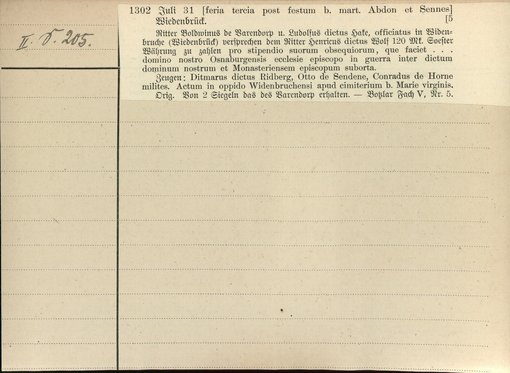 II. S. 205.
1302 Juli 31 [feria tercia post festum b. mart. Abdon et Sennes]
Wiedenbrück. [5
Ritter Boldwinus de Varendorp u. Ludolfus dictus Hake, officiatus in Widen-
bruche (Wiedenbrück) versprechen dem Ritter Henricus dictus Wolf 120 Mk. Soester
Währung zu zahlen pro stipendio suorum obsequiorum, que faciet . . .
domino nostro Osnaburgensis ecclesie episcopo in guerra inter dictum
dominum nostrum et Monasteriensem episcopum suborta.
Zeugen: Ditmarus dictus Ridberg, Otto de Sendene, Conradus de Horne
milites. Actum in oppido Widenbruchensi apud cimiterium b. Marie virginis.
Orig. Von 2 Siegeln das des Varendorp erhalten. — Botzlar Fach V, Nr. 5.